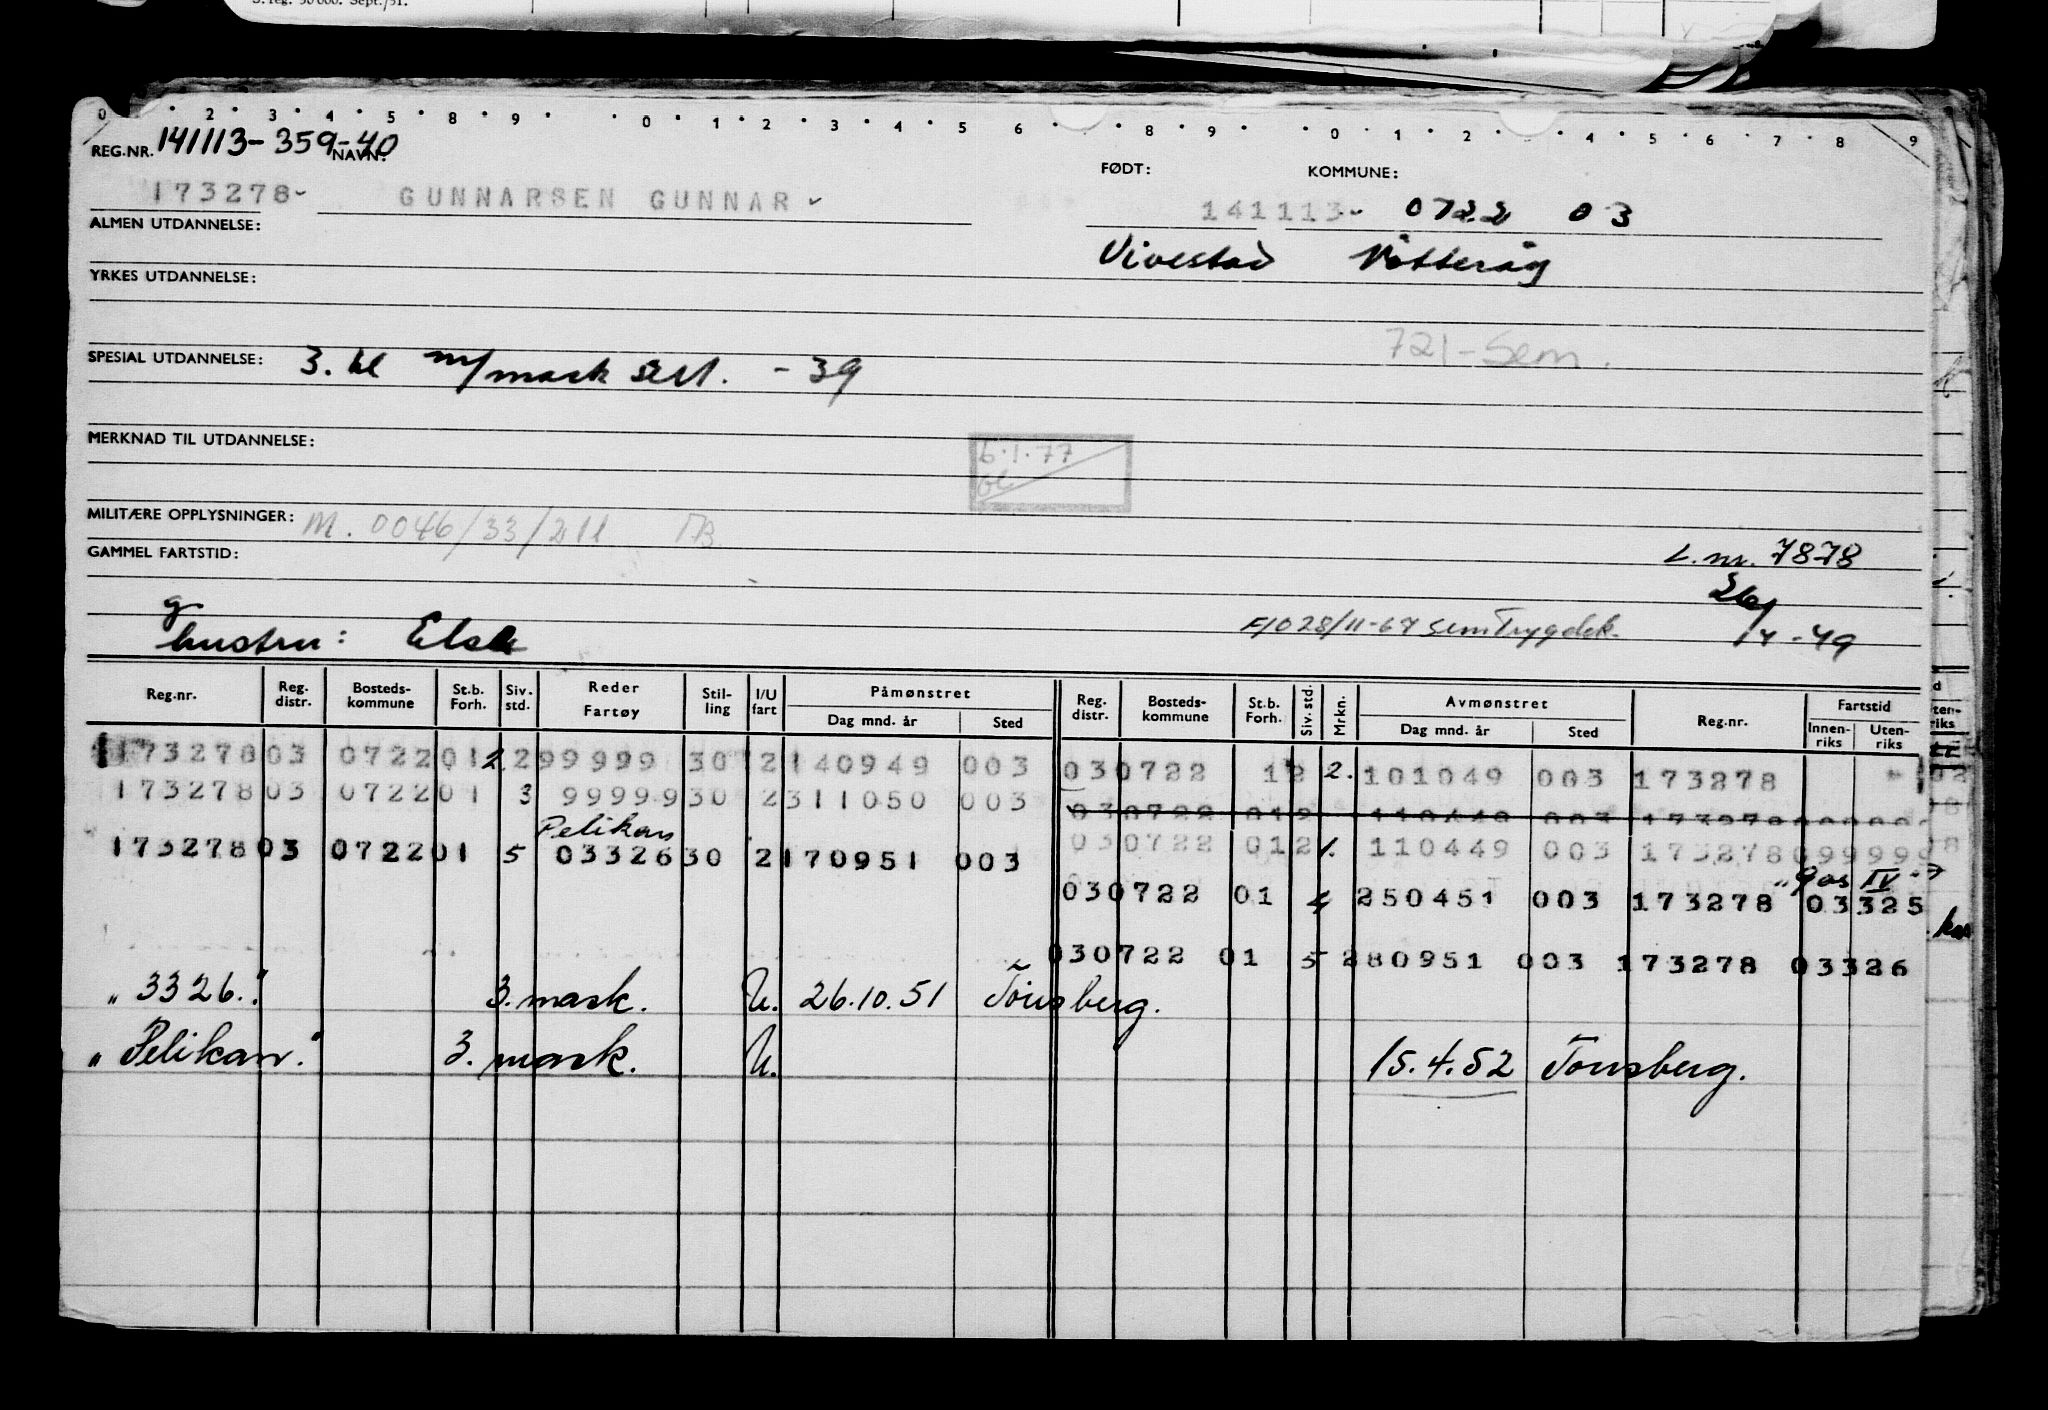 S.reg. 50 000. Sept./51.
0 · 2 · 3 · 4 · 5 · 8 · 9 · · 0 · 1 · 2 · 3 · 4 · 5 · 6 · · 8 · 9 · · 0 · 1 · 2 · · 4 · 5 · 6 · 7 · 8 · 9
REG.NR. 141113-359-40
NAVN: FØDT: KOMMUNE:
173278- GUNNARSEN GUNNAR 141113- 0722 03
ALMEN UTDANNELSE: Vivestad
YRKES UTDANNELSE:
721-Sem.
SPESIAL UTDANNELSE: 3. kl m/mask sert. -39
MERKNAD TIL UTDANNELSE:
6.1.77
MILITÆRE OPPLYSNINGER: M. 0046/33/211
GAMMEL FARTSTID: L.nr. 7878
26/
hustru: Else F/O 28/11-67 Sem Trygdek. /4-49
Reg.nr. Reg. distr. Bosteds-kommune St.b. Forh. Siv. std. Reder Fartøy Stil-ling I/U fart Påmønstret Dag mnd. år Sted Reg. distr. Bosteds-kommune St.b. Forh. Siv. std. Mrkn. Avmønstret Dag mnd. år Sted Reg.nr. Fartstid Innen-riks Uten-riks
173278 03 0722 01 2 299999 30 2 140949 003 03 0722 12 2. 101049 003 173278
173278 03 0722 01 3 99999 30 2 311050 003 030722 012 110449 003 173278
Pelikan
173278 03 0722 01 5 03326 30 2 170951 003 030722 012 1. 110449 003 173278 099999
"Gas IV"
030722 01 4 250451 003 173278 03325
030722 01 5 280951 003 173278 03326
"3326." 3. mask. U. 26.10.51 Tönsberg.
"Pelikan." 3. mask. U. 15.4.52 Tönsberg.